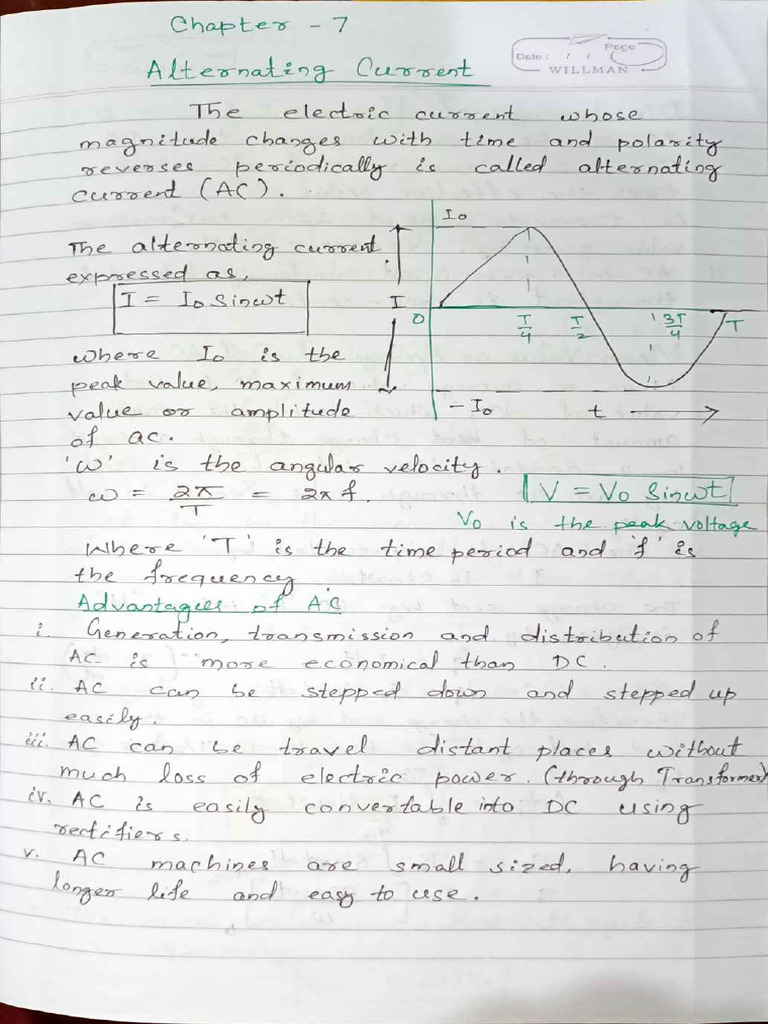 Chapter - 7
Date: / / Page
WILLMAN
Alternating Current
The electric current whose
magnitude changes with time and polarity
reverses periodically is called alternating
current (AC).
The alternating current
expressed as,
I = I₀ Sinωt
where I₀ is the
peak value, maximum
value or amplitude
of ac.
I₀
I
O
T/4
T/2
3T/4
T
- I₀
t
'ω' is the angular velocity.
ω = 2π/T = 2πf.
V = V₀ Sinωt
V₀ is the peak voltage
Where 'T' is the time period and 'f' is
the frequency
Advantagees of AC
i. Generation, transmission and distribution of
AC is more economical than DC.
ii. AC can be stepped down and stepped up
easily.
iii. AC can be travel distant places without
much loss of electric power. (through Transformer)
iv. AC is easily convertable into DC using
rectifiers.
v. AC machines are small sized, having
longer life and easy to use.